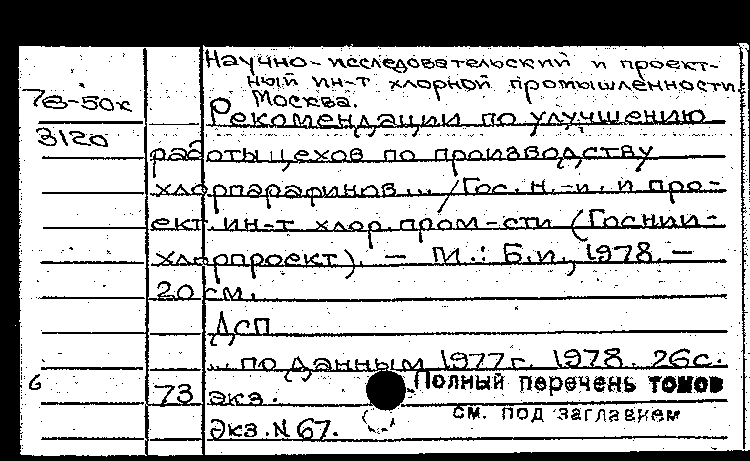 Научно-исследовательский и проект-
ный ин-т хлорной промышленности.
Москва.
7в-50к
Рекомендации по улучшению
3120
работы цехов по производству
хлорпарафинов... / Гос. н.-и. и про-
ект. ин-т хлор. пром-сти (Госнии-
хлорпроект). — М.: Б.и., 1978. —
20 см.
ДСП
... по данным 1977 г. 1978. 26 с.
6
73 экз.
Полный перечень томов
см. под заглавием
Экз. N 67.